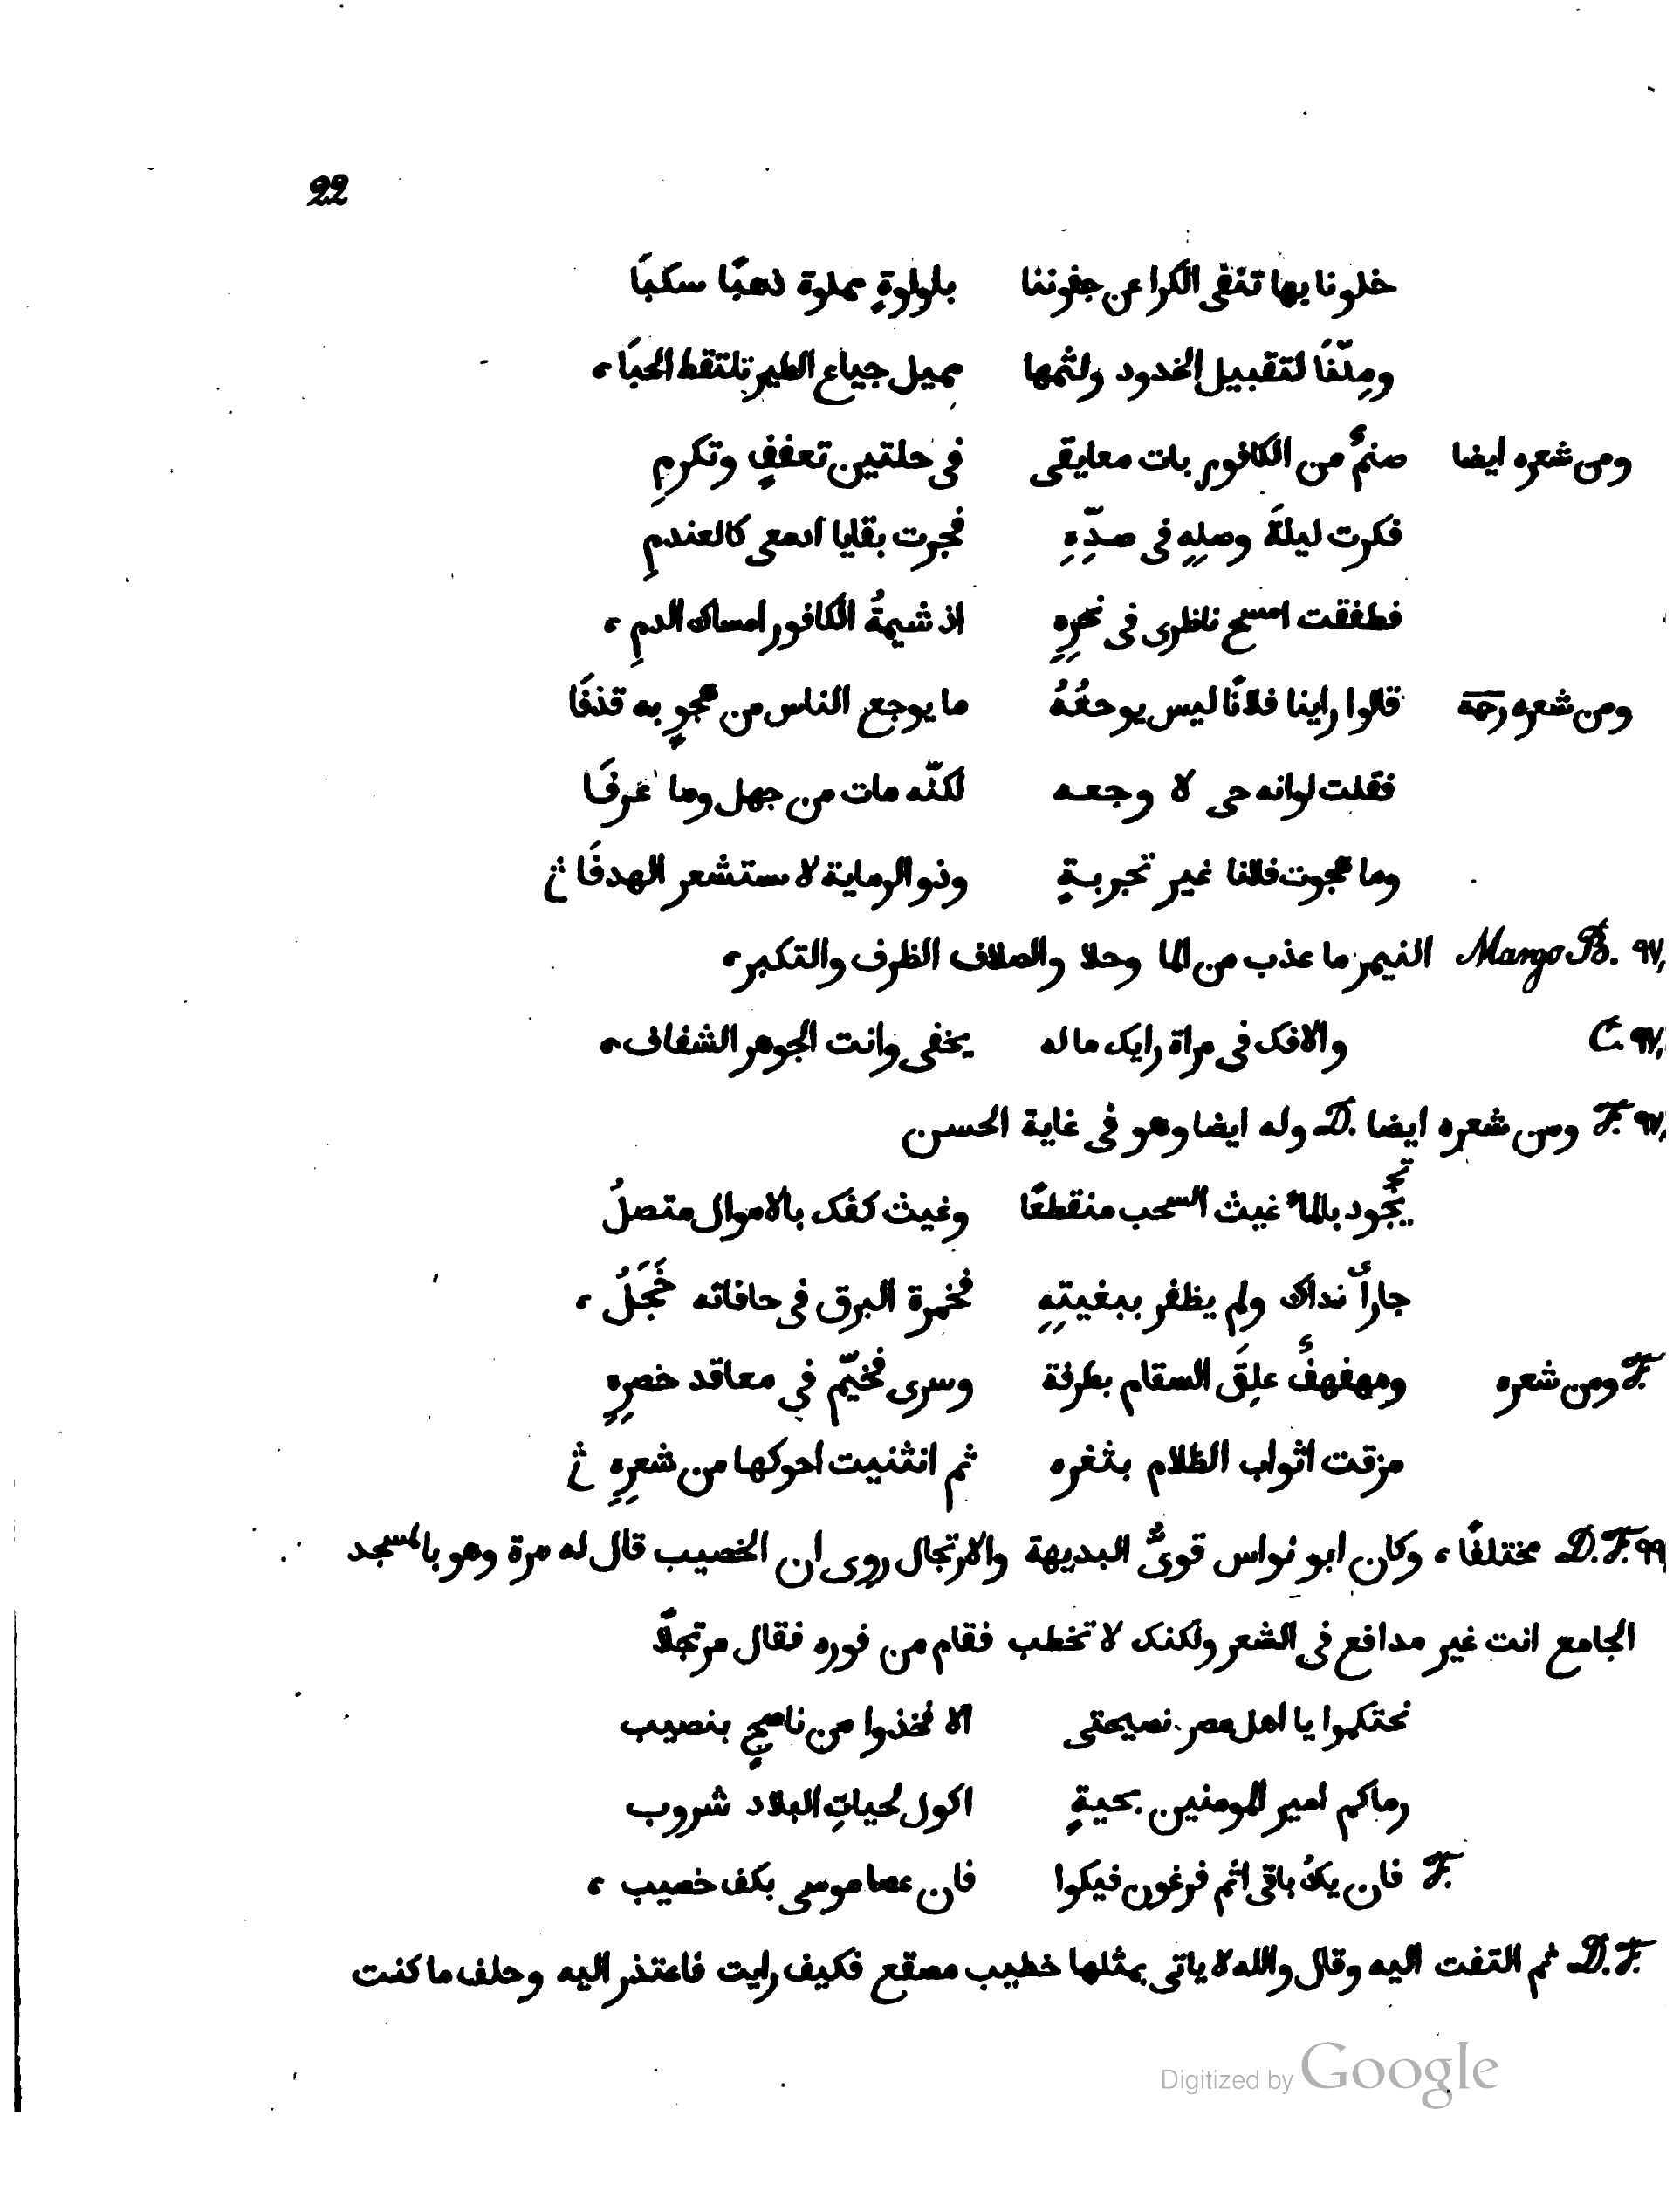 22
خلونا بها تنفى الكرا عن جفوننا بلولوةٍ مملوة ذهبًا سكبَا
ومِلنَا لتقبيل الخدود ولثمها بميل جياع الطير تلتقط الحبَا ،
ومن شعره ايضا صنمٌ من الكافور بات معايقى فى حلتين تعففٍ وتكرمِ
فكرت ليلةَ وصلِهِ فى صدِّهِ فجرت بقايا ادمعى كالعندمِ
فطفقت امسح ناظرى فى نحرِهِ اذ شيمةُ الكافور امساك الدمِ ،
ومن شعره رحمه قالوا راينا فلانًا ليس يوحعُهُ ما يوجع الناس من هجوٍ به قذفَا
فقلت لوانه حى لا وجعه لكنّه مات من جهل وما عرفَا
وما هجوت فلانا غير تجربةٍ وذو الرماية لا يستشعر الهدفَا
Margo B. ٩٧, النيمر ما عذب من الما وحلا والصلاف الظرف والتكبر،
C. ٩٧, والافك فى مراة رايك ما له يخفى وانت الجوهر الشفاف،
F. ٩٧, ومن شعره ايضا D. وله ايضا وهو فى غاية الحسن
يجُود بالماء غيث السحب منقطعًا وغيث كفك بالاموال متصلُ
جاراً نداك ولم يظفر ببغيتِهِ فخمرة البرق فى حافاته خَجَلُ ،
F. ومن شعره ومهفهفٌ علِقَ السقام بطرفة وسرى فخيّم في معاقد خصرِهِ
مزقت اثواب الظلام بثغره ثم انثنيت احوكها من شعرِهِ
D. F. ٩٩ مختلفًا ، وكان ابو نواس قوىُّ البديهة والارتجال روى ان الخصيب قال له مرة وهو بالمسجد
الجامع انت غير مدافع فى الشعر ولكنك لا تخطب فقام من فوره فقال مرتجلًا
نحتكموا يا اهل مصر نصيحتى الا فخذوا من ناصحٍ بنصيب
رماكم امير المومنين بحيةٍ اكول لحياتِ البلاد شروب
F. فان يكُ باقى اثم فرغون فيكوا فان عصا موسى بكف خصيب ،
D. F. ثم التفت اليه وقال والله لا ياتى بمثلها خطيب مصقع فكيف رايت فاعتذر اليه وحلف ما كنت
Digitized by Google